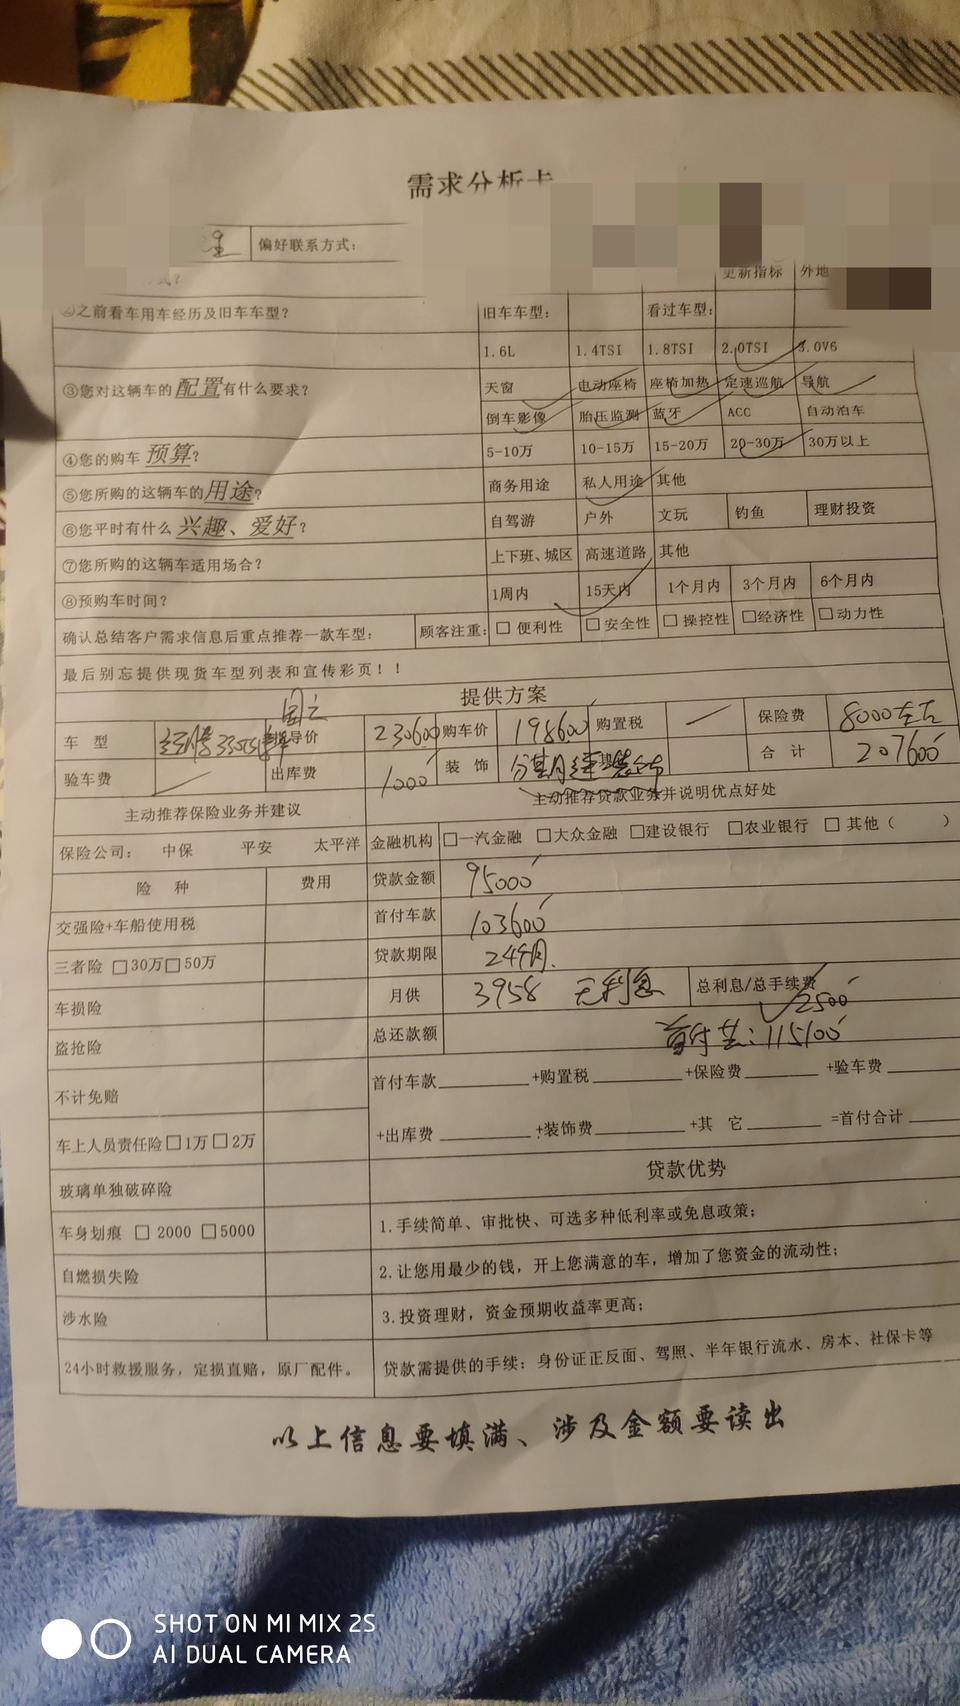 需求分析卡
偏好联系方式:
更新指标 外地
②之前看车用车经历及旧车车型? 旧车车型: 看过车型:
1.6L 1.4TSI 1.8TSI 2.0TSI 3.0V6
③您对这辆车的配置有什么要求? 天窗 电动座椅 座椅加热 定速巡航 导航
倒车影像 胎压监测 蓝牙 ACC 自动泊车
④您的购车预算? 5-10万 10-15万 15-20万 20-30万 30万以上
⑤您所购的这辆车的用途? 商务用途 私人用途 其他
⑥您平时有什么兴趣、爱好? 自驾游 户外 文玩 钓鱼 理财投资
⑦您所购的这辆车适用场合? 上下班、城区 高速道路 其他
⑧预购车时间? 1周内 15天内 1个月内 3个月内 6个月内
确认总结客户需求信息后重点推荐一款车型: 顾客注重: □ 便利性 □ 安全性 □ 操控性 □经济性 □ 动力性
最后别忘提供现货车型列表和宣传彩页!!
提供方案
车 型 330TSI 指导价 230600 购车价 198600 购置税 保险费 8000左右
验车费 出库费 1000 装 饰 合 计 207600
主动推荐保险业务并建议 主动推荐贷款业务并说明优点好处
保险公司: 中保 平安 太平洋 金融机构 □一汽金融 □大众金融 □建设银行 □农业银行 □ 其他( )
险 种 费用 贷款金额 95000
交强险+车船使用税 首付车款 103600
三者险 □30万□50万 贷款期限 24个月.
车损险 月供 3958 无利息 总利息/总手续费 2500
盗抢险 总还款额 首付共:115100
不计免赔 首付车款 +购置税 +保险费 +验车费
车上人员责任险□1万□2万 +出库费 +装饰费 +其 它 =首付合计
玻璃单独破碎险 贷款优势
车身划痕 □ 2000 □5000 1.手续简单、审批快、可选多种低利率或免息政策;
自燃损失险 2.让您用最少的钱,开上您满意的车,增加了您资金的流动性;
涉水险 3.投资理财,资金预期收益率更高;
24小时救援服务,定损直赔,原厂配件。 贷款需提供的手续:身份证正反面、驾照、半年银行流水、房本、社保卡等
以上信息要填满、涉及金额要读出
SHOT ON MI MIX 2S
AI DUAL CAMERA